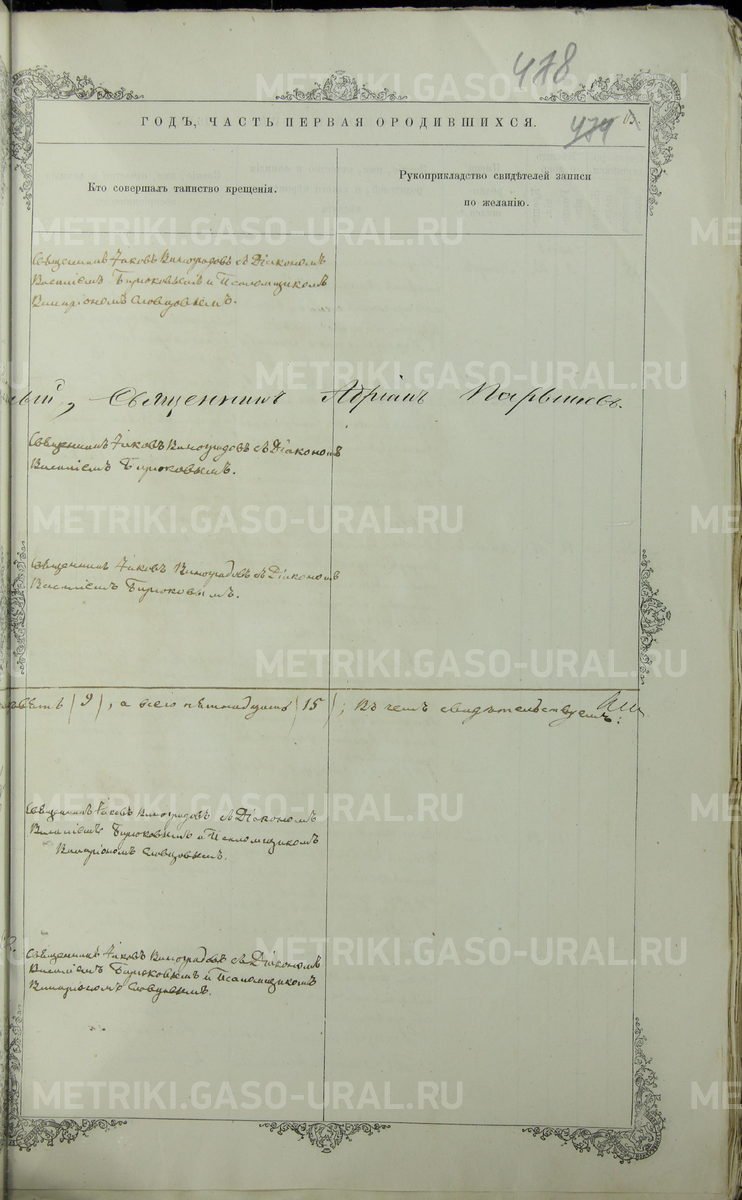 478
ГОДЪ, ЧАСТЬ ПЕРВАЯ ОРОДИВШИХСЯ.
479
Кто совершалъ таинство крещенія.
Рукоприкладство свидѣтелей записи
по желанію.
Священникъ Іаковъ Виноградовъ съ Діакономъ
Василіемъ Бирюковымъ и Псаломщикомъ
Иларіономъ Словцовымъ.
Священникъ Адріанъ
Священникъ Іаковъ Виноградовъ съ Діакономъ
Василіемъ Бирюковымъ.
Священникъ Іаковъ Виноградовъ съ Діакономъ
Василіемъ Бирюковымъ.
(9), а всего пятнадцать (15); Въ чемъ свидѣтельствуемъ:
Священникъ Іаковъ Виноградовъ съ Діакономъ
Василіемъ Бирюковымъ и Псаломщикомъ
Иларіономъ Словцовымъ.
Священникъ Іаковъ Виноградовъ съ Діакономъ
Василіемъ Бирюковымъ и Псаломщикомъ
Иларіономъ Словцовымъ.
METRIKI.GASO-URAL.RU